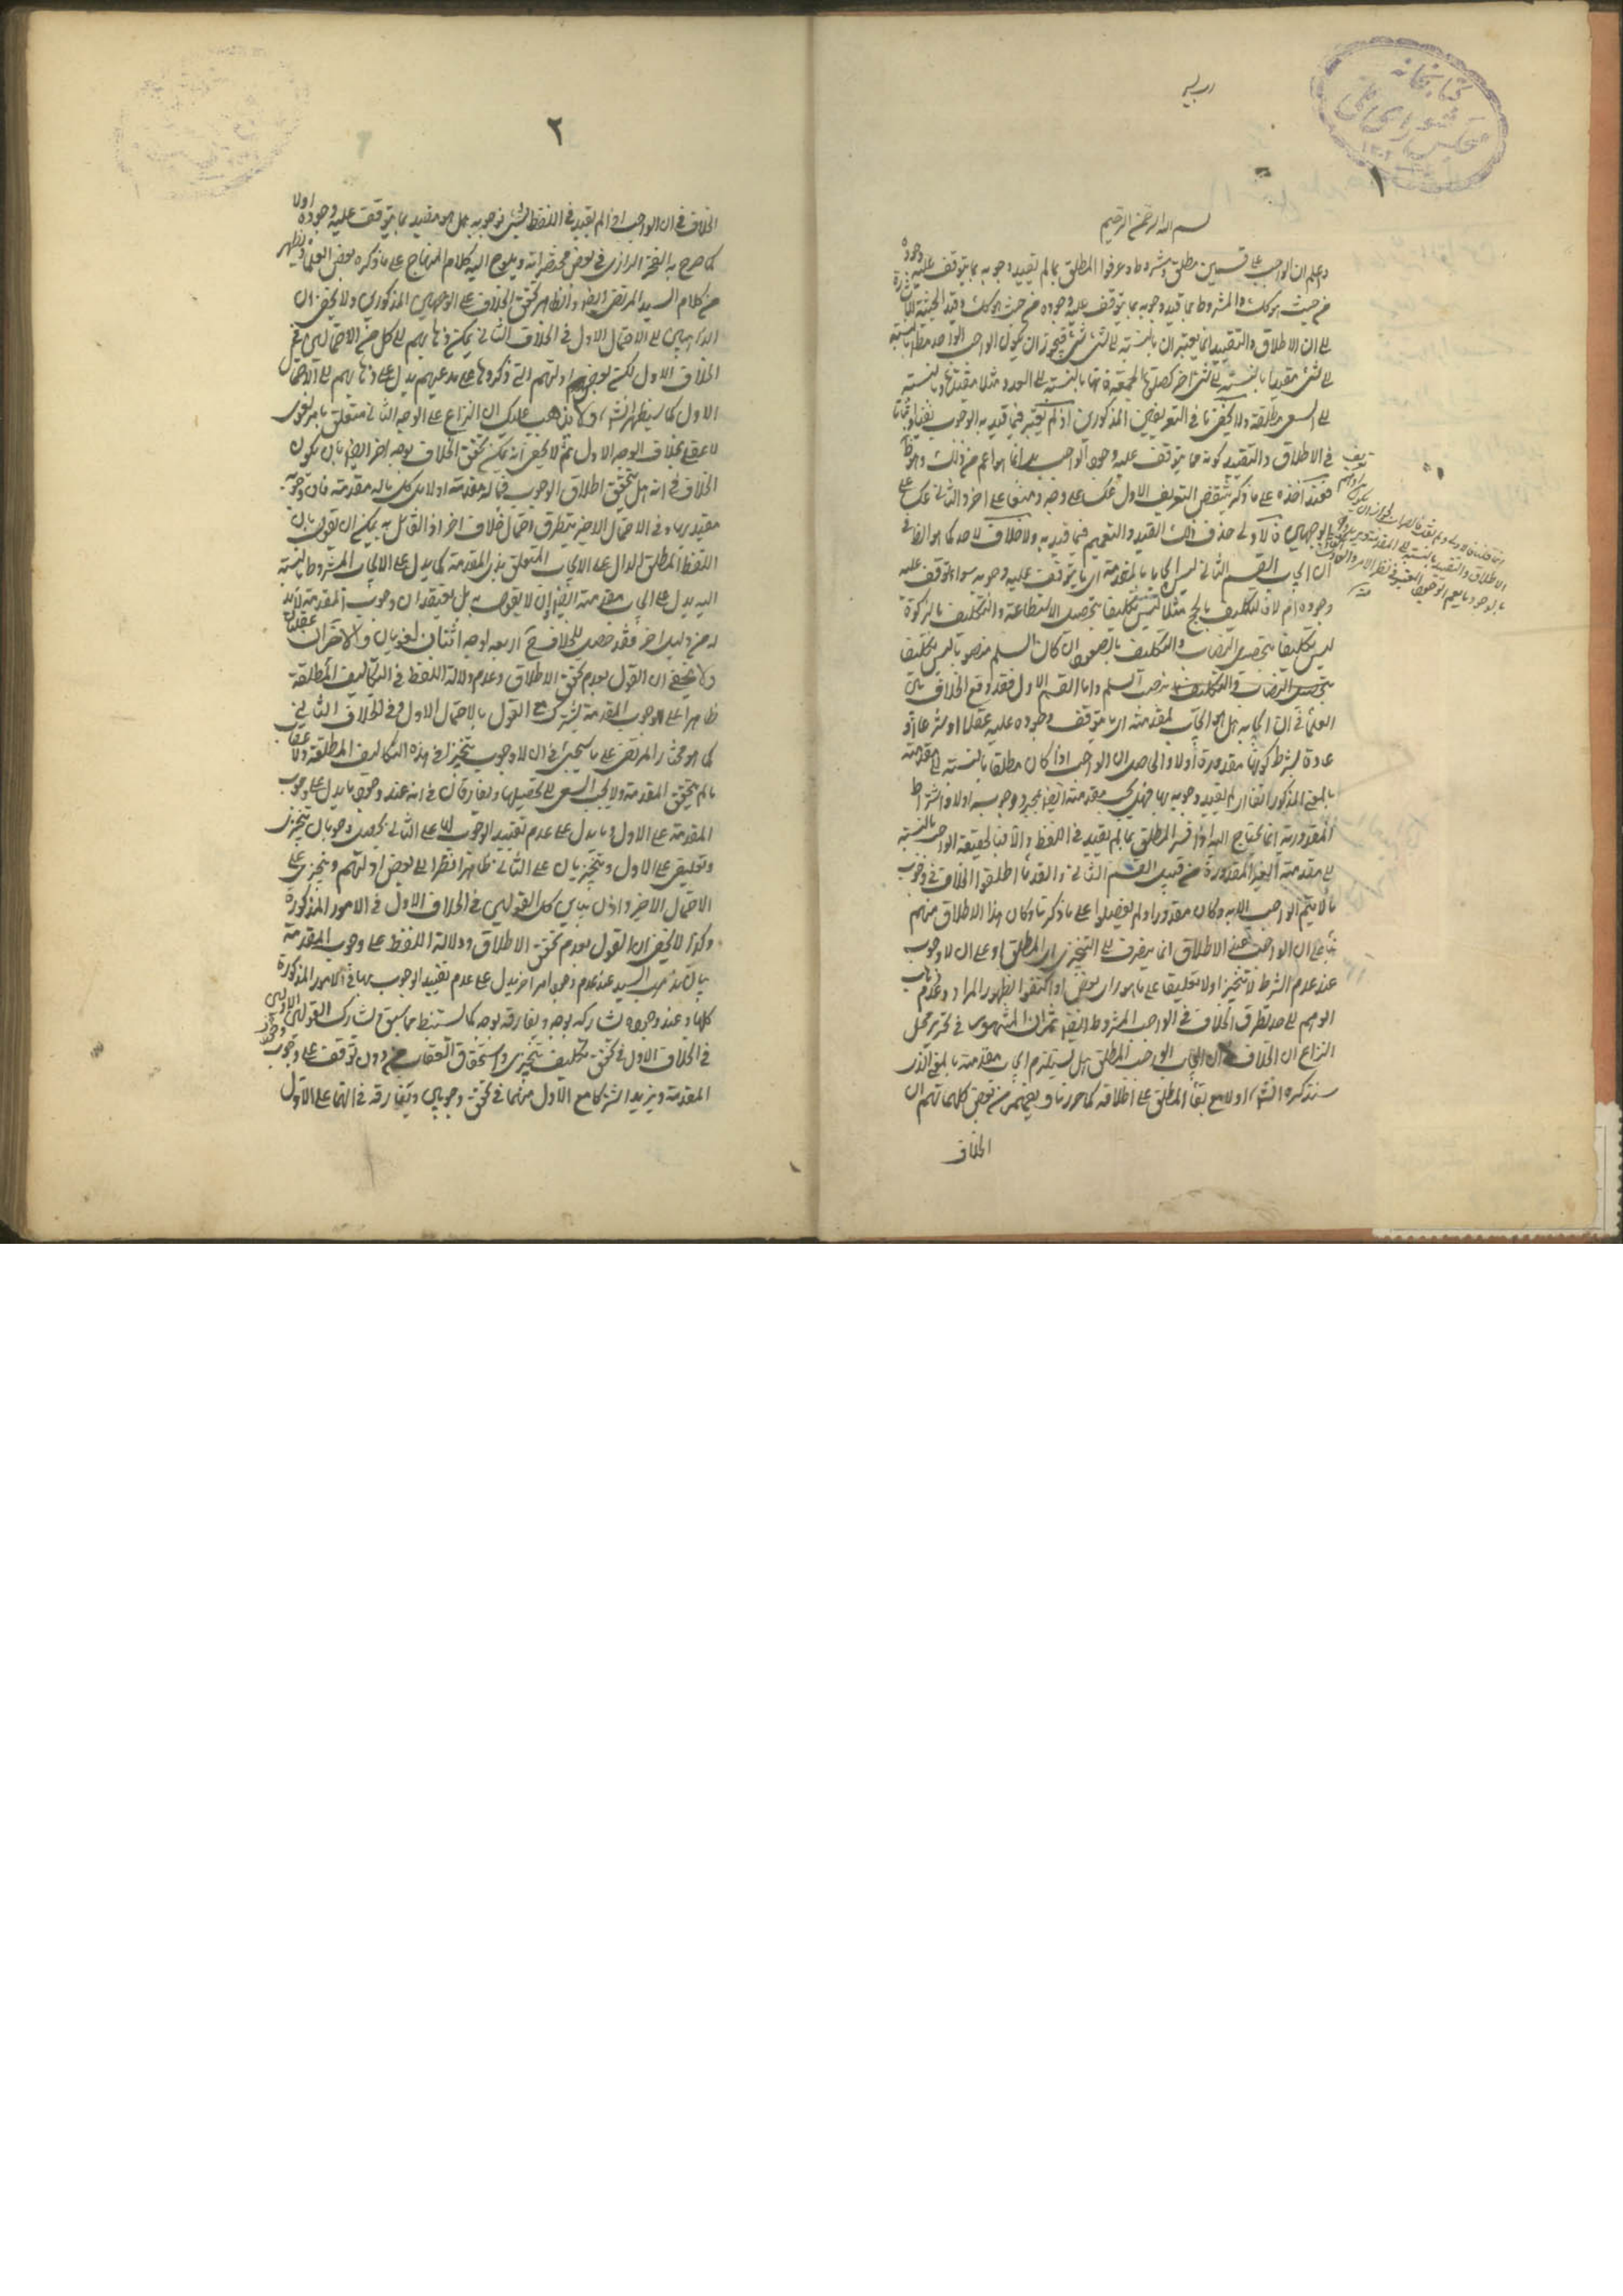 كتابخانه
مجلس شورای ملی
١
بسم الله الرحمن الرحيم
واعلم ان الواجب على قسمين مطلق ومشروط وعرفوا المطلق بما لم يقيد وجوبه بما يتوقف عليه وجوده
من حيث هو كك والمشروط بما قيد وجوبه بما يتوقف عليه وجوده من حيث هو كك وقيد الحيثية للاشارة
الى ان الاطلاق والتقييد انما يعتبران بالنسبة الى شئ شئ فيجوز ان يكون الواجب الواحد مطلقا بالنسبة
الى شئ مقيدا بالنسبة الى شئ اخر كصلوة الجمعة فانها بالنسبة الى العدد مثلا مقيدة وبالنسبة
الى السعى مطلقة ولا يخفى ما فى التعريفين المذكورين اذ لم يعتبر فيما قيد به الوجوب
فى الاطلاق والتقييد كونه مما يتوقف عليه وجود الواجب بل انما هو اعم من ذلك
فعند اخذه على ما ذكر ينتقض التعريف الاول عكسا على وجه ومنعا على اخر والثانى عكسا على
الوجهين فالاولى حذف ذلك القيد والتعميم فيما قيد به ولا خلاف لاحد كما هو الظ فى
ان ايجاب القسم الثانى ليس ايجابا لمقدمته اى ما يتوقف عليه وجوبه سواء توقف عليه
وجوده ام لا فالتكليف بالحج مثلا ليس تكليفا بتحصيل الاستطاعة والتكليف بالزكوة
ليس تكليفا بتحصيل النصاب والتكليف بالصعود ان كان السلم منصوبا ليس تكليفا
بنصب السلم واما القسم الاول فقد وقع الخلاف بين
العلماء فى ان ايجابه هل هو ايجاب لمقدمته اى ما يتوقف وجوده عليه عقلا او شرعا او
عادة بشرط كونها مقدورة اولا والحاصل ان الواجب اذا كان مطلقا بالنسبة الى مقدمته
بالمعنى المذكور انفا اى لم يقيد وجوبه بها فهل يجب مقدمته ايضا بمجرد وجوبه اولا واشتراط
المقدورية انما يحتاج اليه اذا فسر المطلق بما لم يقيد فى اللفظ والا فبالحقيقة الواجب بالنسبة
الى مقدمته الغير المقدورة من قبيل القسم الثانى والقدماء اطلقوا الخلاف فى وجوب
ما لا يتم الواجب الا به وكان مقدورا ولم يفصلوا على ما ذكرنا وكان هذا الاطلاق منهم
بناء على ان الواجب عند الاطلاق انما ينصرف الى التنجيزى اى المطلق او على ان لا وجوب
عند عدم الشرط لا تنجيزا ولا تعليقا على ما هو راى بعض او اكتفوا بظهور المراد وعدم
الوهم الى حد تطرق الخلاف فى الواجب المشروط ايضا ثم ان المشهور فى تحرير محل
النزاع ان الخلاف فى ان ايجاب الواجب المطلق هل يستلزم ايجاب مقدمته بالمعنى الذى
سنذكره انش اولا مع بقاء المطلق على اطلاقه كما حررنا ويفهم من بعض كلماتهم ان
الخلاف
٢
الخلاف فى ان الواجب اذا لم يقيد فى اللفظ بشئ فوجوبه هل هو مقيد بما يتوقف عليه وجوده اولا
كما صرح به الفخر الرازى فى بعض مختصراته ويلوح اليه كلام المنهاج على ما ذكره بعض العلماء ويظهر
من كلام السيد المرتضى ايضا والظاهر تحقق الخلاف على الوجهين المذكورين ولا يخفى ان
الذاهبين الى الاحتمال الاول فى الخلاف الثانى يمكن ذهابهم الى كل من الاحتمالين فى
الخلاف الاول لكن بعض ادلتهم التى ذكروها على مدعيهم يدل على ذهابهم الى الاحتمال
الاول كما سيظهر انش ولا يذهب عليك ان النزاع على الوجه الثانى متعلق بامر لغوى
لا عقلى بخلاف الوجه الاول ثم لا يخفى انه يمكن تحقق الخلاف بوجه اخر ايضا بان يكون
الخلاف فى انه هل يتحقق اطلاق الوجوب فيما له مقدمة اولا بل كل ما له مقدمة فان وجوبه
مقيد بها وفى الاحتمال الاخير يتطرق احتمال خلاف اخر اذ القائل به يمكن ان يقول بان
اللفظ المطلق الدال على الايجاب المتعلق بذى المقدمة كما يدل على الايجاب المشروط بالنسبة
اليه يدل على ايجاب مقدمته ايضا وان لا يقول به بل يعتقد ان وجوب المقدمة لا بد
له من دليل اخر فقد حصل للخلاف اربعة اوجه اثنان لغويان والاخران عقليان
ولا يخفى ان القول بعدم تحقق الاطلاق وعدم دلالة اللفظ فى التكاليف المطلقة
ظاهرا على وجوب المقدمة يشترك مع القول بالاحتمال الاول فى الخلاف الثانى
كما هو مختار المرتضى على ما سيجئ فى ان لا وجوب تنجيزا فى هذه التكاليف المطلقة ولا عقاب
ما لم يتحقق المقدمة ولا يجب السعى الى تحصيلها ويفارقان فى انه عند وجود ما يدل على وجوب
المقدمة على الاول وما يدل على عدم تقييد الوجوب بها على الثانى يحصل وجوبان تنجيزى
وتعليقى على الاول وتنجيزيان على الثانى ظاهرا نظرا الى بعض ادلتهم وتنجيزى على
الاحتمال الاخير واذن يباين كل القولين فى الخلاف الاول فى الامور المذكورة
وكذا لا يخفى ان القول بعدم تحقق الاطلاق ودلالة اللفظ على وجوب المقدمة
يباين مذهب السيد عند عدم وجود امر اخر يدل على عدم تقييد الوجوب بها فى الامور المذكورة
كلها وعند وجوده يشاركه بوجه ويفارقه بوجه كما يستنبط مما سبق ويشارك القولين الاولين
فى الخلاف الاول فى تحقق تكليف تنجيزى واستحقاق العقاب من دون توقف على وجوب
المقدمة ويزيد اشتراكا مع الاول منهما فى تحقق وجوبين ويفارقه فى انهما على الاول